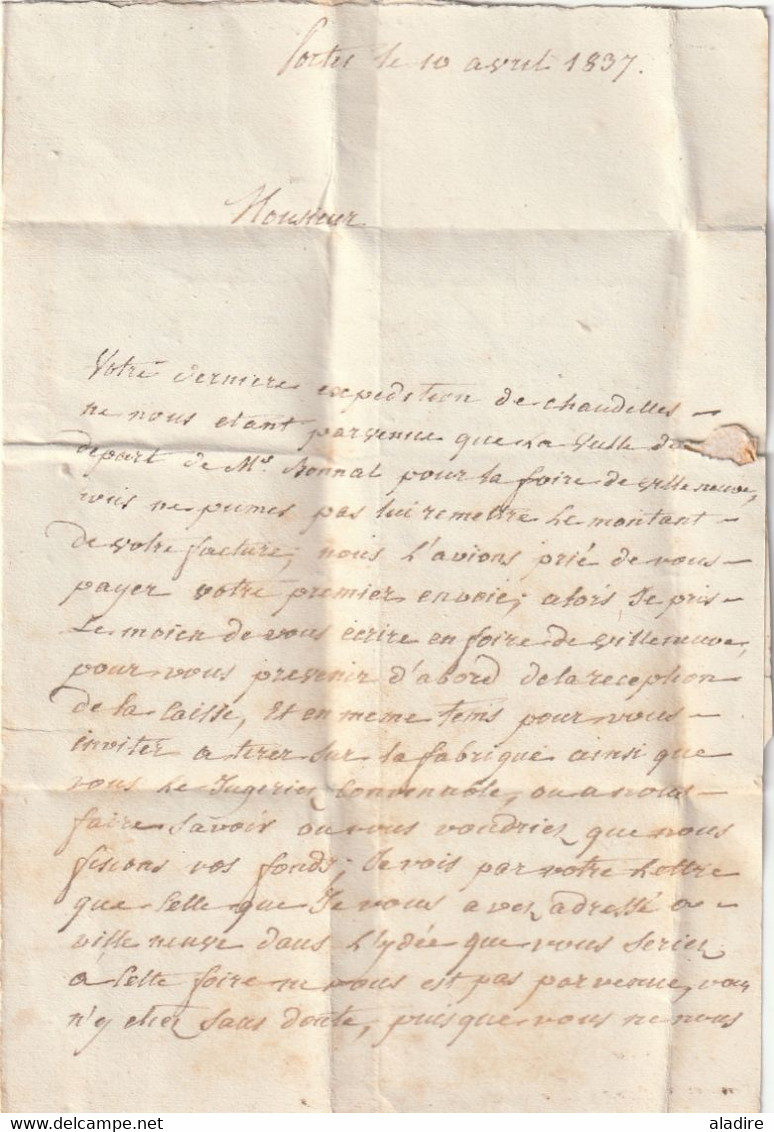 Portes le 10 avril 1837.
Monsieur
Votre derniere expedition de chandelles
ne nous etant parvenue que la Veille du
depart de Mr. Bonnal pour la foire de villeneuve,
nous ne pumes pas lui remettre le montant
de votre facture, nous l'avions prié de vous
payer votre premier envoie; alors Je pris
le moien de vous écrire en foire de villeneuve,
pour vous prevenir d'abord de la reception
de la Caisse, Et en meme tems pour vous
inviter a tirer sur la fabrique ainsi que
vous le Jugeriez Convenable, ou a nous
faire savoir ou vous voudriez que nous
fissions vos fonds; Je vois par votre lettre
que Celle que Je vous avez adressé a
ville neuve dans l'ydée que vous seriez
a Cette foire ne vous est pas parvenue, vous
n'y etiez sans doute, puisque vous ne nous
aladire